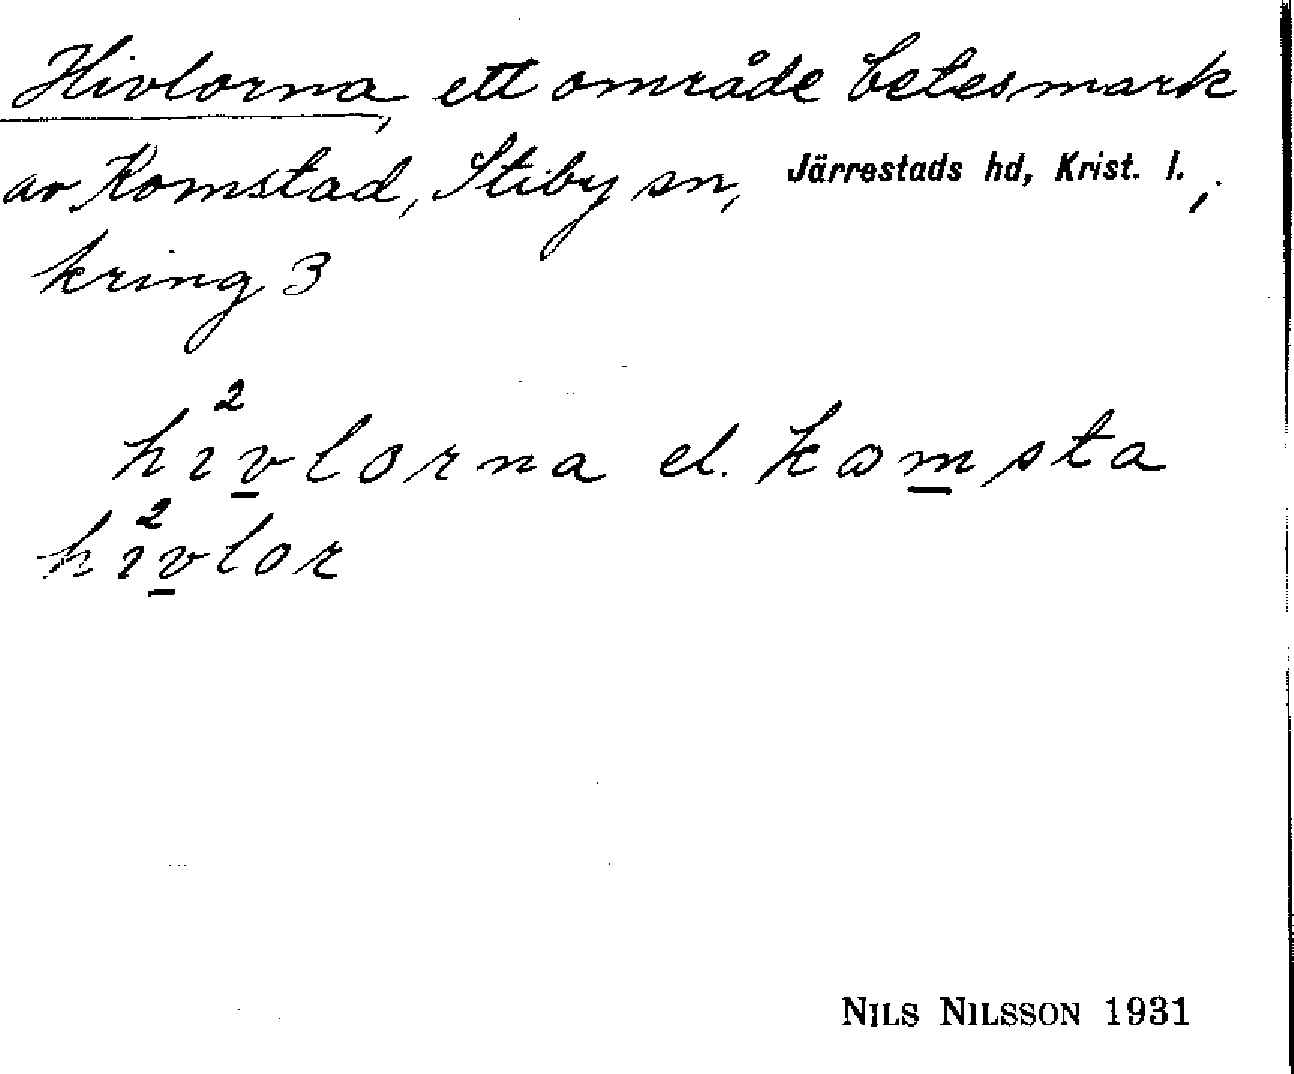 Hivlorna, ett område betesmark
av Komstad, Stiby sn, Järrestads hd, Krist. l.,
kring 3
hı²v̲lorna el. kωm̲sta
hı²v̲lor
NILS NILSSON 1931